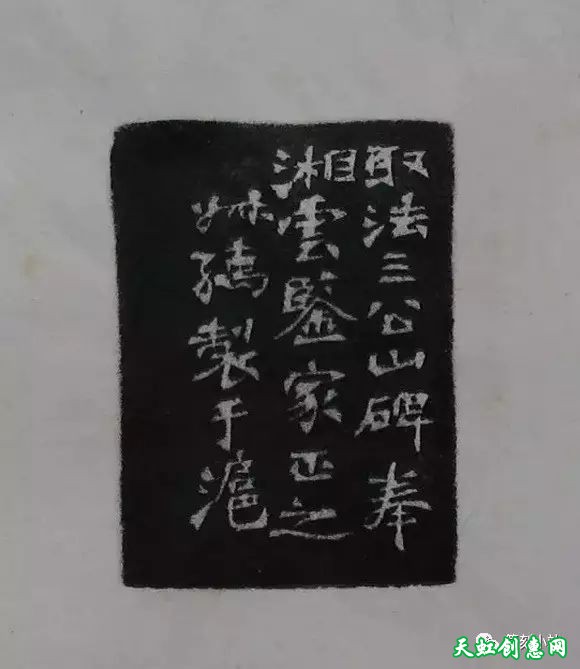 取法三公山碑奉
湘雲鑒家正之
叔孺製于滬
天虹创意网